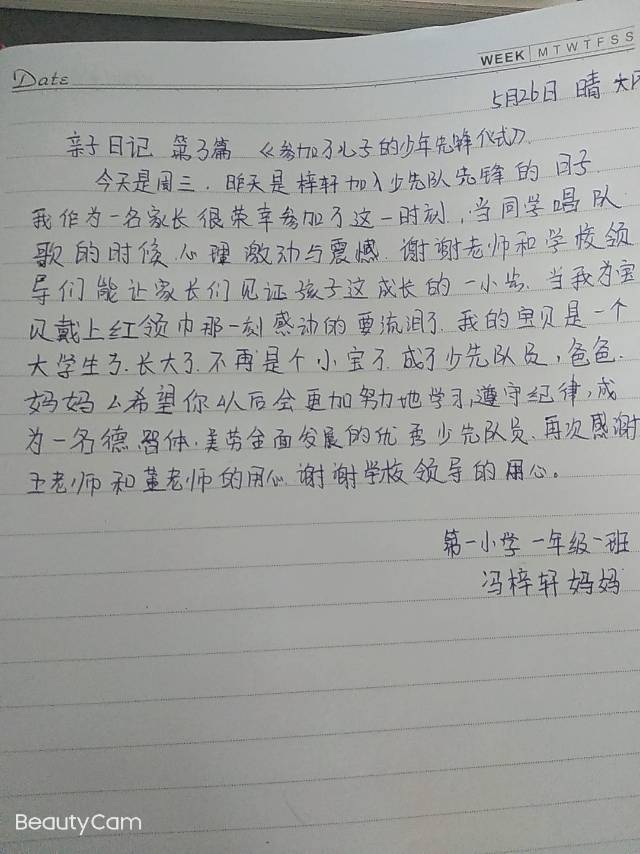 Date
WEEK M T W T F S S
5月26日 晴 大风
亲子日记 第3篇 《参加了儿子的少年先锋仪式》.
今天是周三. 昨天是梓轩加入少先队先锋的日子.
我作为一名家长很荣幸参加了这一时刻, 当同学唱队
歌的时候心理激动与震憾. 谢谢老师和学校领
导们能让家长们见证孩子这成长的一小步. 当我为宝
贝戴上红领巾那一刻感动的要流泪了. 我的宝贝是一个
大学生了. 长大了. 不再是个小宝了. 成了少先队员, 爸爸.
妈妈 希望你从后会更加努力地学习, 遵守纪律, 成
为一名德.智.体.美劳全面发展的优秀少先队员. 再次感谢
王老师和董老师的用心. 谢谢学校领导的用心。
第一小学一年级一班
冯梓轩妈妈
BeautyCam